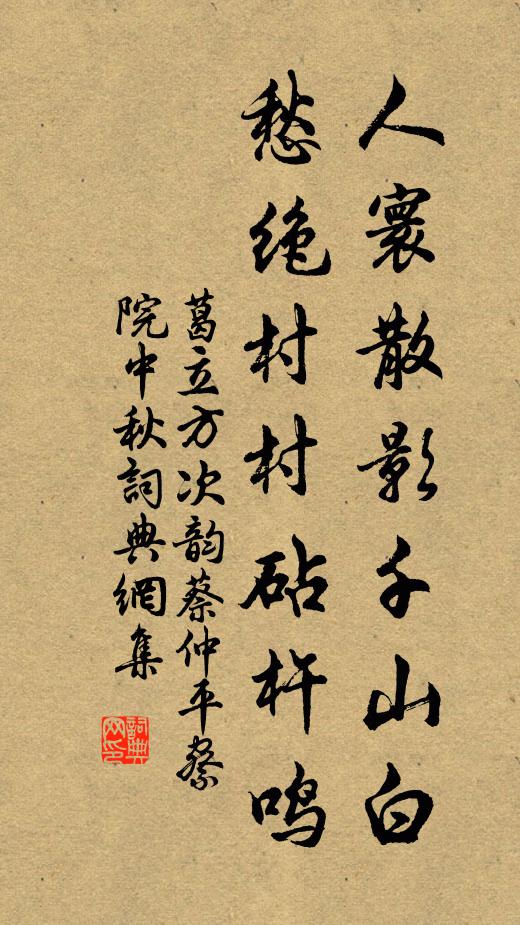 人寰散影千山白
愁绝村村砧杵鸣
葛立方次韵蔡仲平祭
院中秋詞典網集
詞典网印